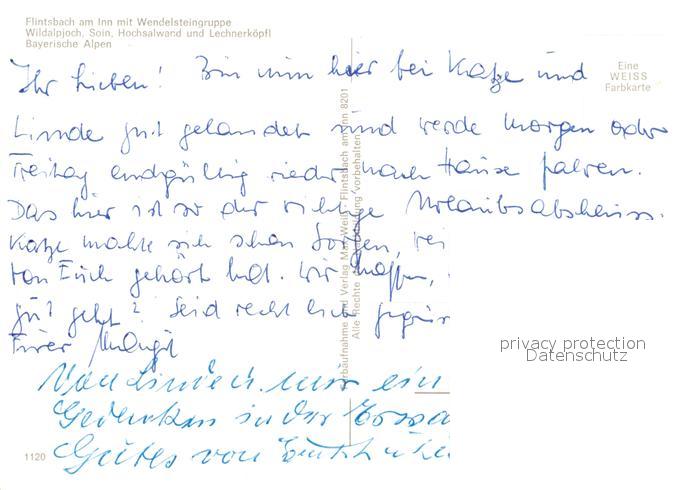 Flintsbach am Inn mit Wendelsteingruppe
Wildalpjoch, Soin, Hochsalwand und Lechnerköpfl
Bayerische Alpen
Eine
WEISS
Farbkarte
Ihr Lieben! Bin nun hier bei Katze und
Linde gut gelandet und werde morgen oder
Freitag endgültig wieder nach Hause fahren.
Das hier ist so der richtige Urlaubsabschluss.
Katze machte sich schon Sorgen,
von Euch gehört hat. Wir hoffen,
gut geht? Seid recht lieb
Eurer
Von ein
Gedenken in der
Gutes von
Verlag Flintsbach am Inn 8201
Alle Rechte vorbehalten
privacy protection
Datenschutz
1120